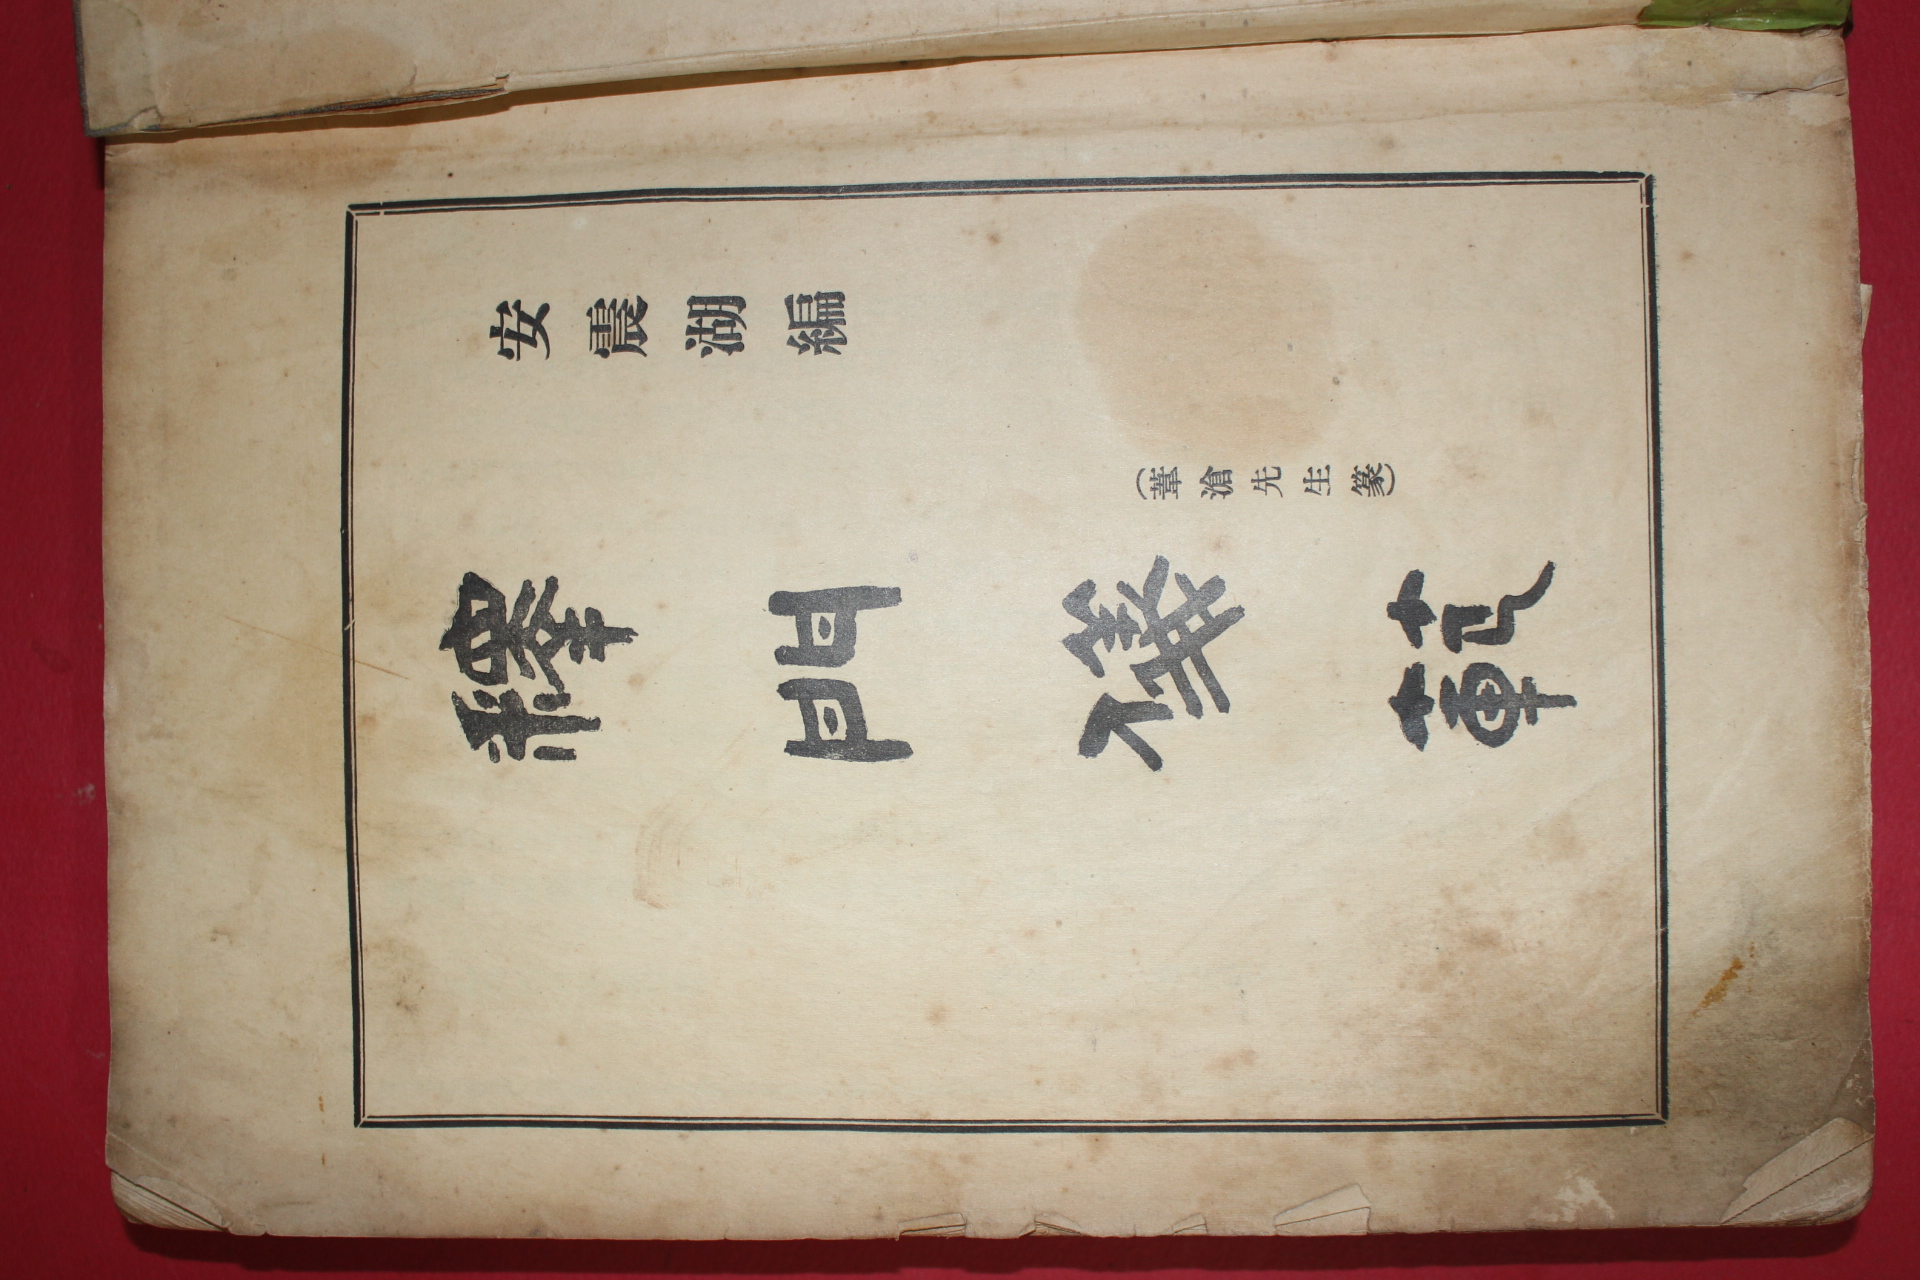 安震湖編
(葦滄先生篆)
釋門儀範